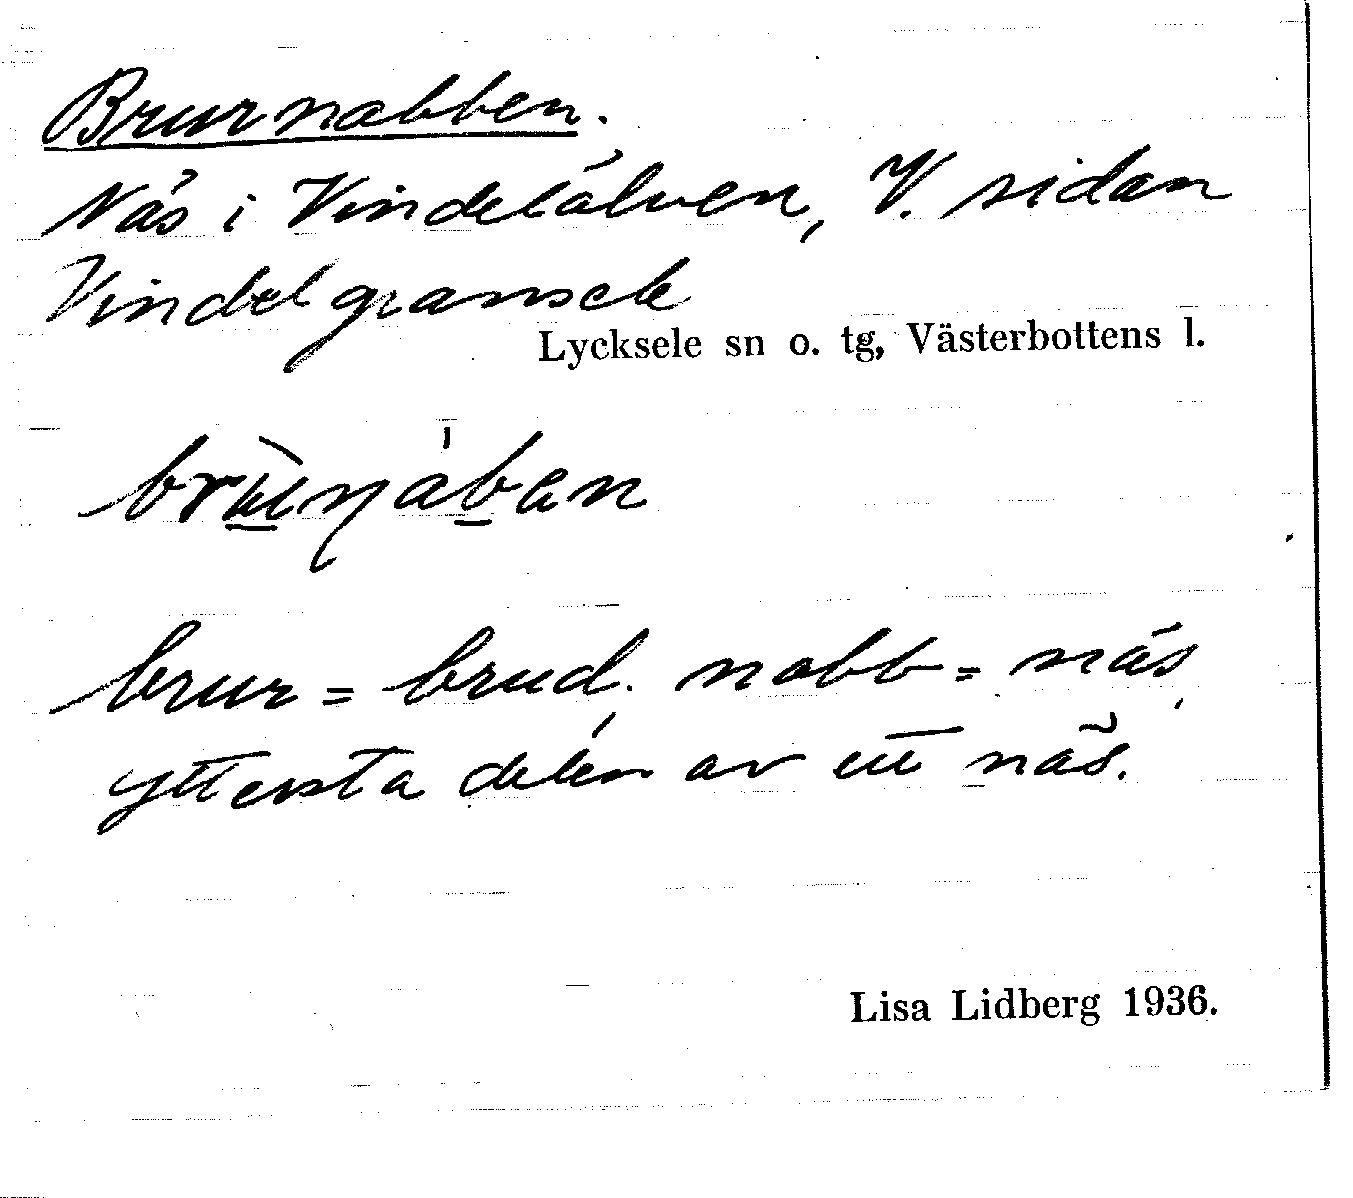 Brurnabben.
Näs i Vindelälven, V. sidan
Vindelgransele
Lycksele sn o. tg, Västerbottens l.
brur = brud. nabb = näs,
yttersta delen av ett näs.
Lisa Lidberg 1936.